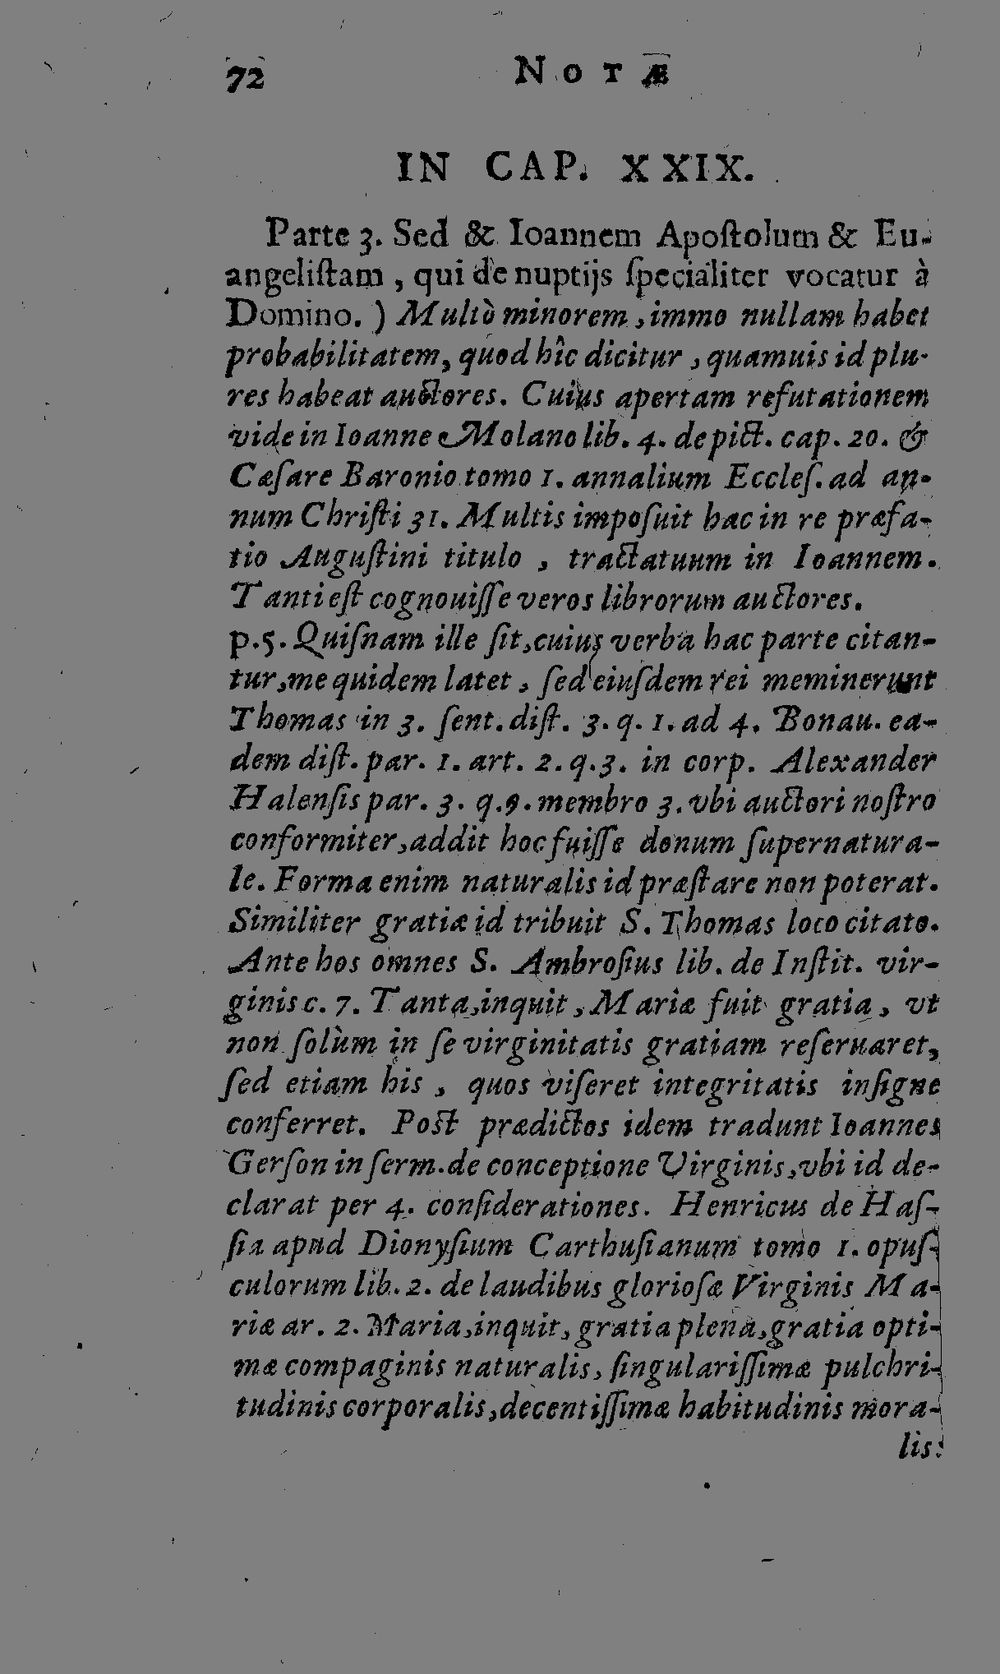 72 NOTÆ
IN CAP. XXIX.
Parte 3. Sed & Ioannem Apoſtolum & Eu-
angeliſtam, qui de nuptijs ſpecialiter vocatur à
Domino. ) Multò minorem, immo nullam habet
probabilitatem, quod hîc dicitur, quamuis id plu-
res habeat auctores. Cuius apertam refutationem
vide in Ioanne Molano lib. 4. de pict. cap. 20. &
Cæſare Baronio tomo 1. annalium Eccleſ. ad an-
num Chriſti 31. Multis impoſuit hac in re præfa-
tio Auguſtini titulo, tractatuum in Ioannem.
Tanti eſt cognouiſſe veros librorum auctores.
p.5. Quiſnam ille ſit, cuius verba hac parte citan-
tur, me quidem latet, ſed eiuſdem rei meminerunt
Thomas in 3. ſent. diſt. 3. q. 1. ad 4. Bonau. ea-
dem diſt. par. 1. art. 2. q. 3. in corp. Alexander
Halenſis par. 3. q. 9. membro 3. vbi auctori noſtro
conformiter, addit hoc fuiſſe donum ſupernatura-
le. Forma enim naturalis id præſtare non poterat.
Similiter gratiæ id tribuit S. Thomas loco citato.
Ante hos omnes S. Ambroſius lib. de Inſtit. vir-
ginis c. 7. Tanta, inquit, Mariæ fuit gratia, vt
non ſolùm in ſe virginitatis gratiam reſeruaret,
ſed etiam his, quos viſeret integritatis inſigne
conferret. Poſt prædictos idem tradunt Ioannes
Gerſon in ſerm. de conceptione Virginis, vbi id de-
clarat per 4. conſiderationes. Henricus de Haſ-
ſia apud Dionyſium Carthuſianum tomo 1. opuſ-
culorum lib. 2. de laudibus glorioſæ Virginis Ma-
riæ ar. 2. Maria, inquit, gratia plena, gratia opti-
mæ compaginis naturalis, ſingulariſſimæ pulchri-
tudinis corporalis, decentiſſimæ habitudinis mora-
lis: